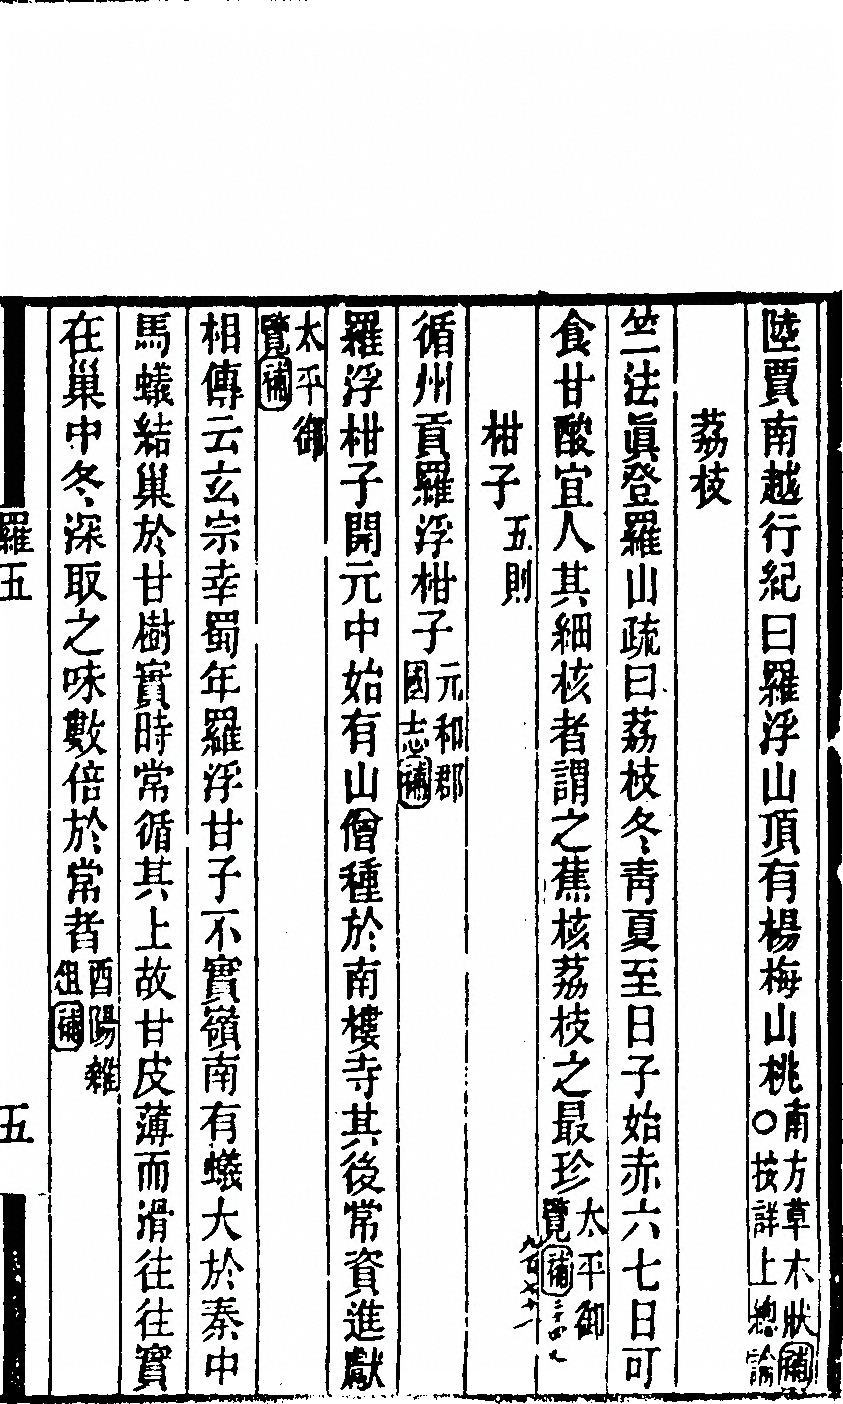 陸賈南越行紀曰羅浮山頂有楊梅山桃南方草木狀補○按詳上總論補
荔枝
竺法眞登羅山疏曰荔枝冬靑夏至日子始赤六七日可
食甘酸宜人其細核者謂之蕉核荔枝之最珍太平御覽補
九百七十一
柑子五則
循州貢羅浮柑子元和郡國志補
羅浮柑子開元中始有山僧種於南樓寺其後常資進獻
太平御覽補
相傳云玄宗幸蜀年羅浮甘子不實嶺南有蟻大於秦中
馬蟻結巢於甘樹實時常循其上故甘皮薄而滑往往實
在巢中冬深取之味數倍於常者酉陽雜俎補
羅五
五